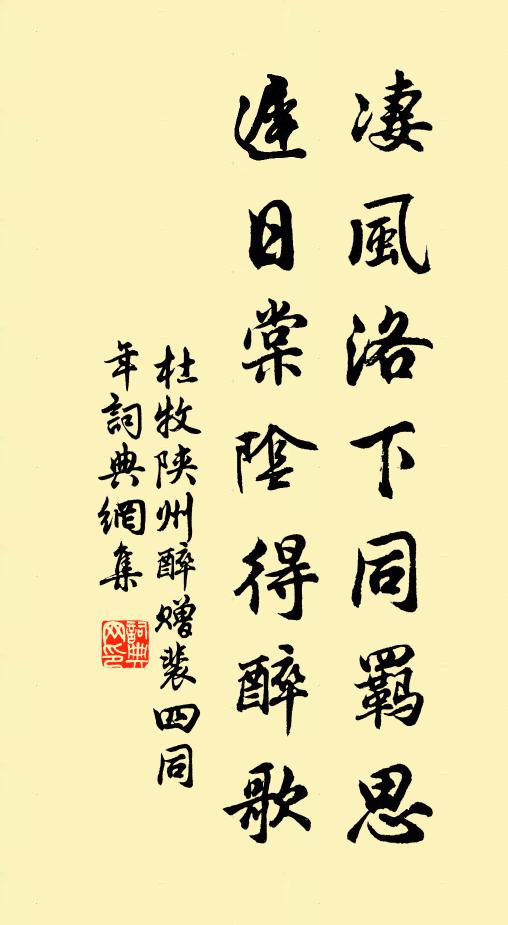 淒風洛下同羈思
遲日棠陰得醉歌
杜牧陝州醉贈裴四同
年詞典網集
詞典
网印